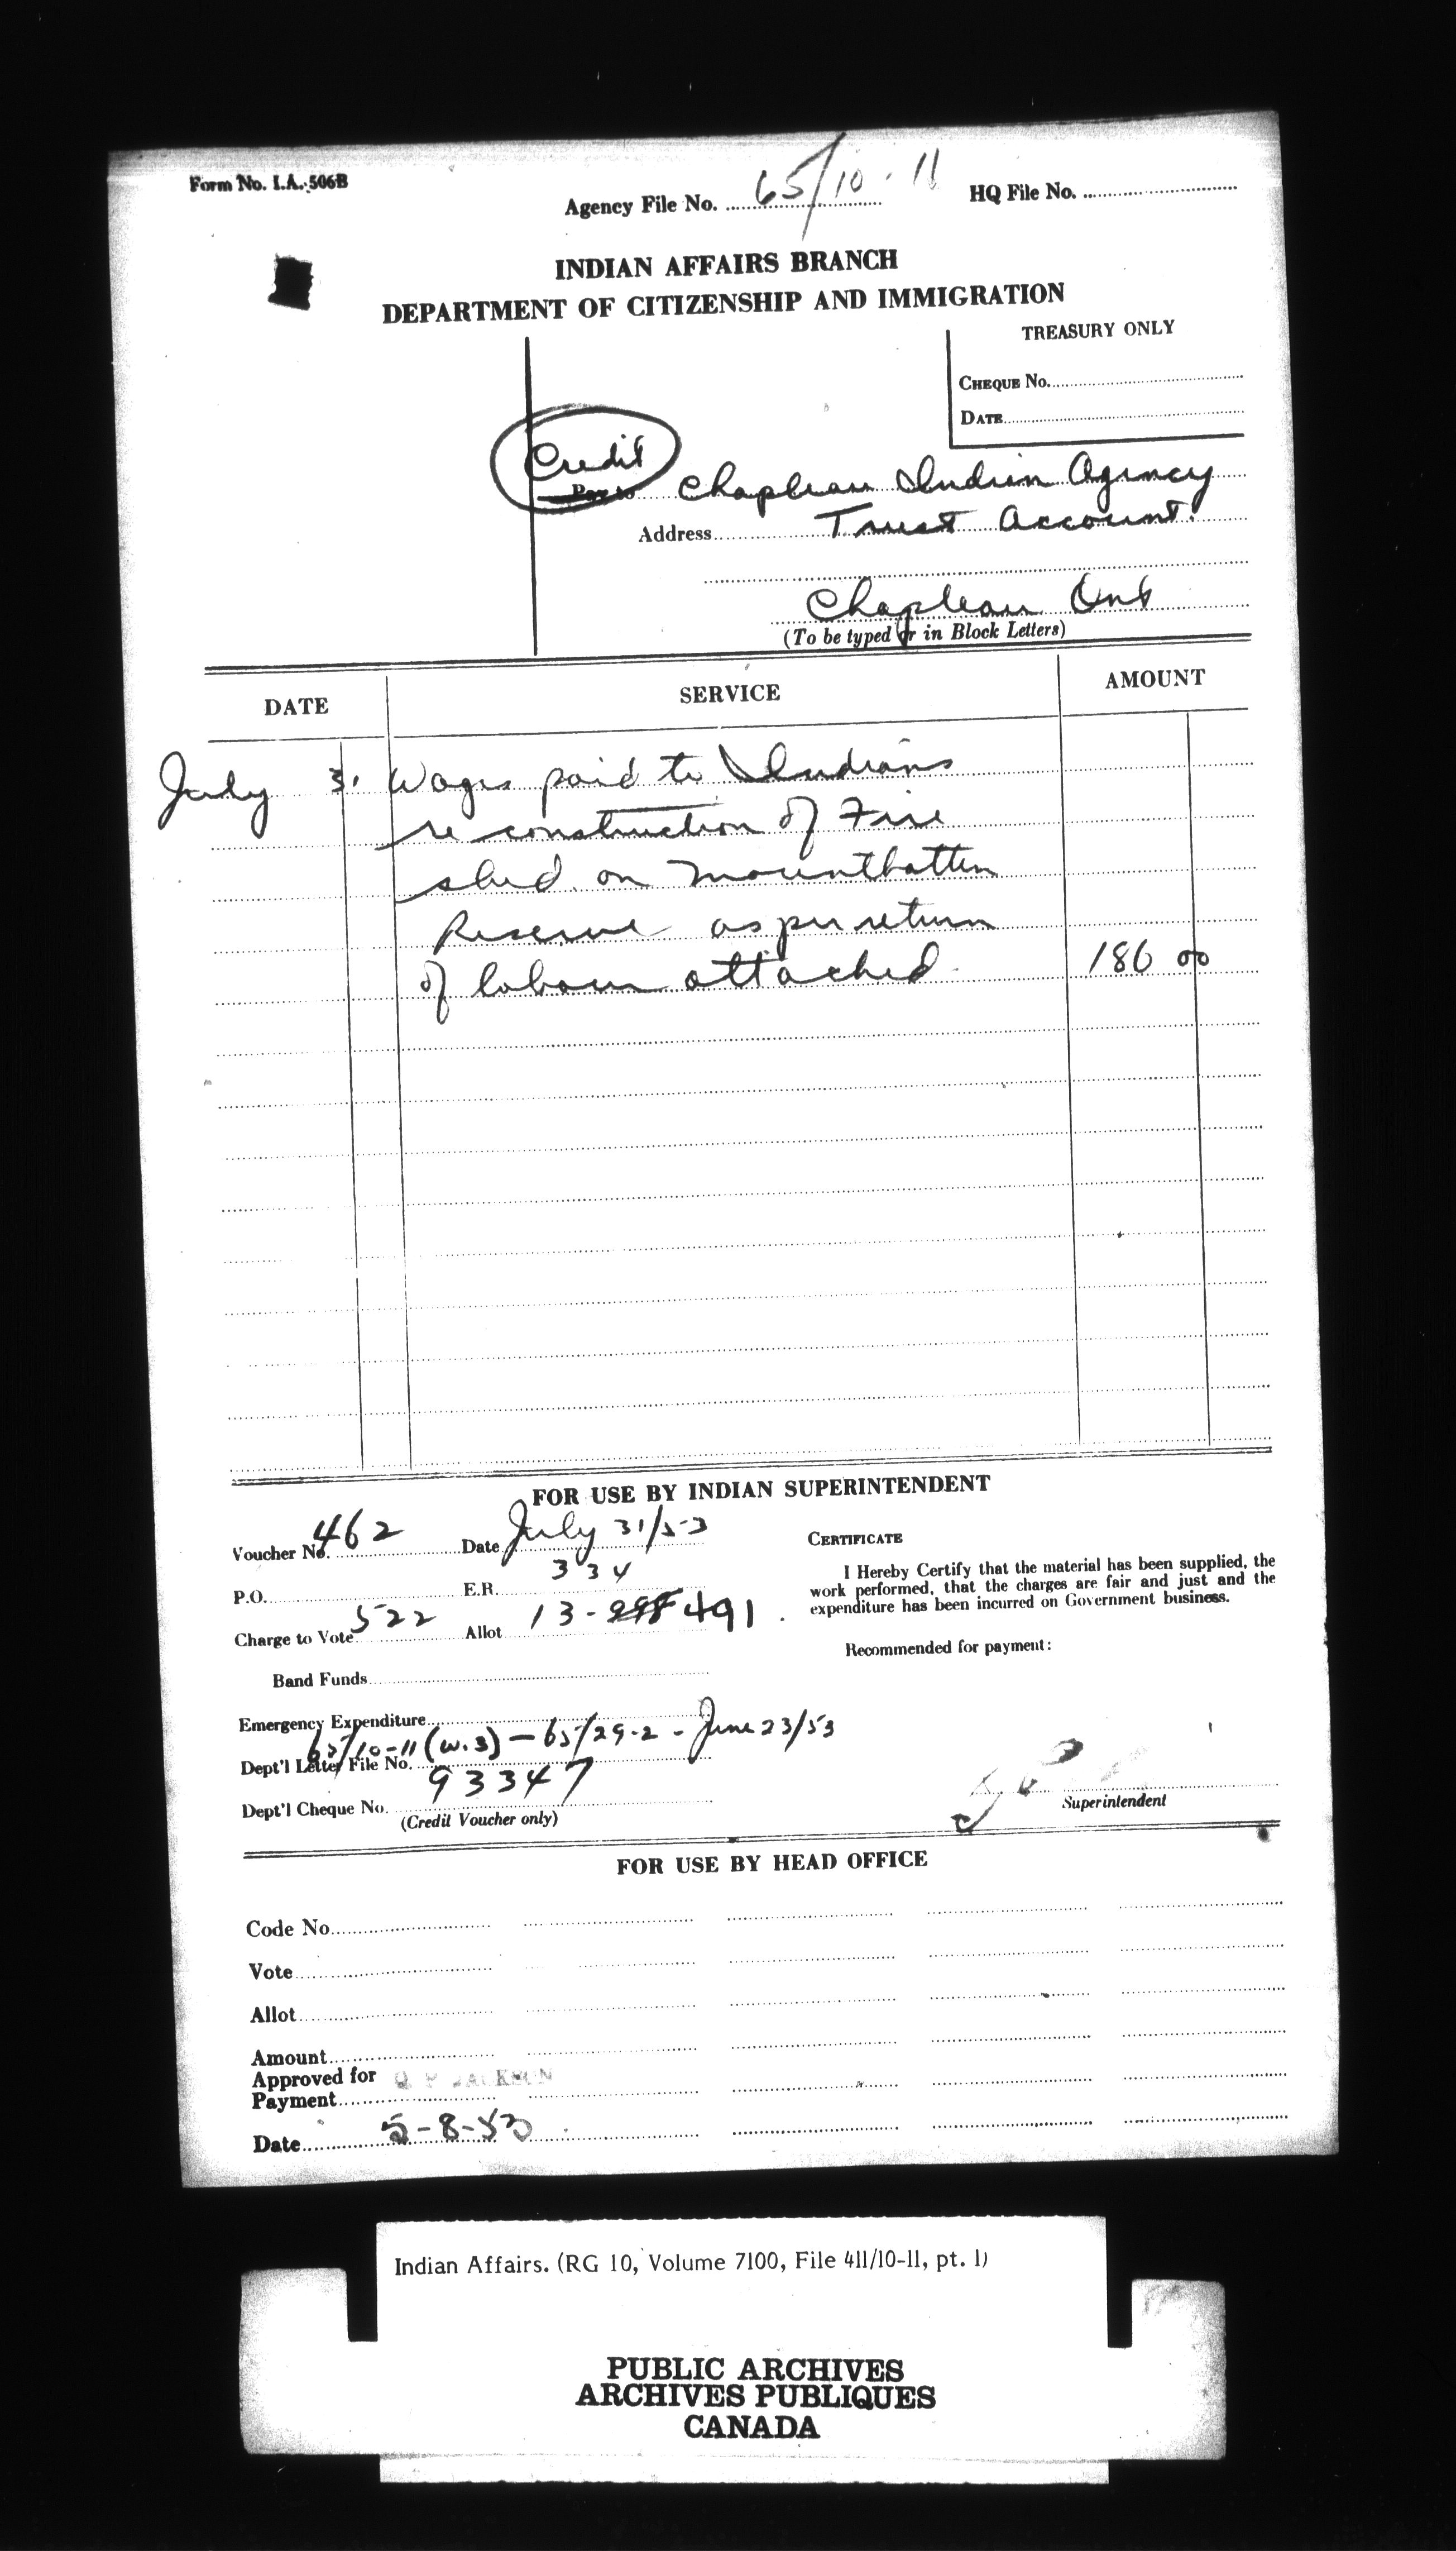 Form No. I.A. 506B
Agency File No. 65/10-11 HQ File No.
INDIAN AFFAIRS BRANCH
DEPARTMENT OF CITIZENSHIP AND IMMIGRATION
TREASURY ONLY
CHEQUE No.
DATE
Credit
Pay to Chapleau Indian Agency
Address Trust Account.
Chapleau Ont
(To be typed or in Block Letters)
DATE SERVICE AMOUNT
July 31 Wages paid to Indians
re construction of Fire
shed on Mountbatten
Reserve as per return
of labour attached 186 00
FOR USE BY INDIAN SUPERINTENDENT
Voucher No. 462 Date July 31/53
P.O. E.R. 334
Charge to Vote 522 Allot 13- 491
Band Funds
Emergency Expenditure
Dept'l Letter File No. 65/10-11 (W.3) - 65/29-2 - June 23/53
Dept'l Cheque No. 93347
(Credit Voucher only)
CERTIFICATE
I Hereby Certify that the material has been supplied, the
work performed, that the charges are fair and just and the
expenditure has been incurred on Government business.
Recommended for payment:
Superintendent
FOR USE BY HEAD OFFICE
Code No.
Vote
Allot
Amount
Approved for
Payment JACKSON
Date 5-8-53
Indian Affairs. (RG 10, Volume 7100, File 411/10-11, pt. 1)
PUBLIC ARCHIVES
ARCHIVES PUBLIQUES
CANADA